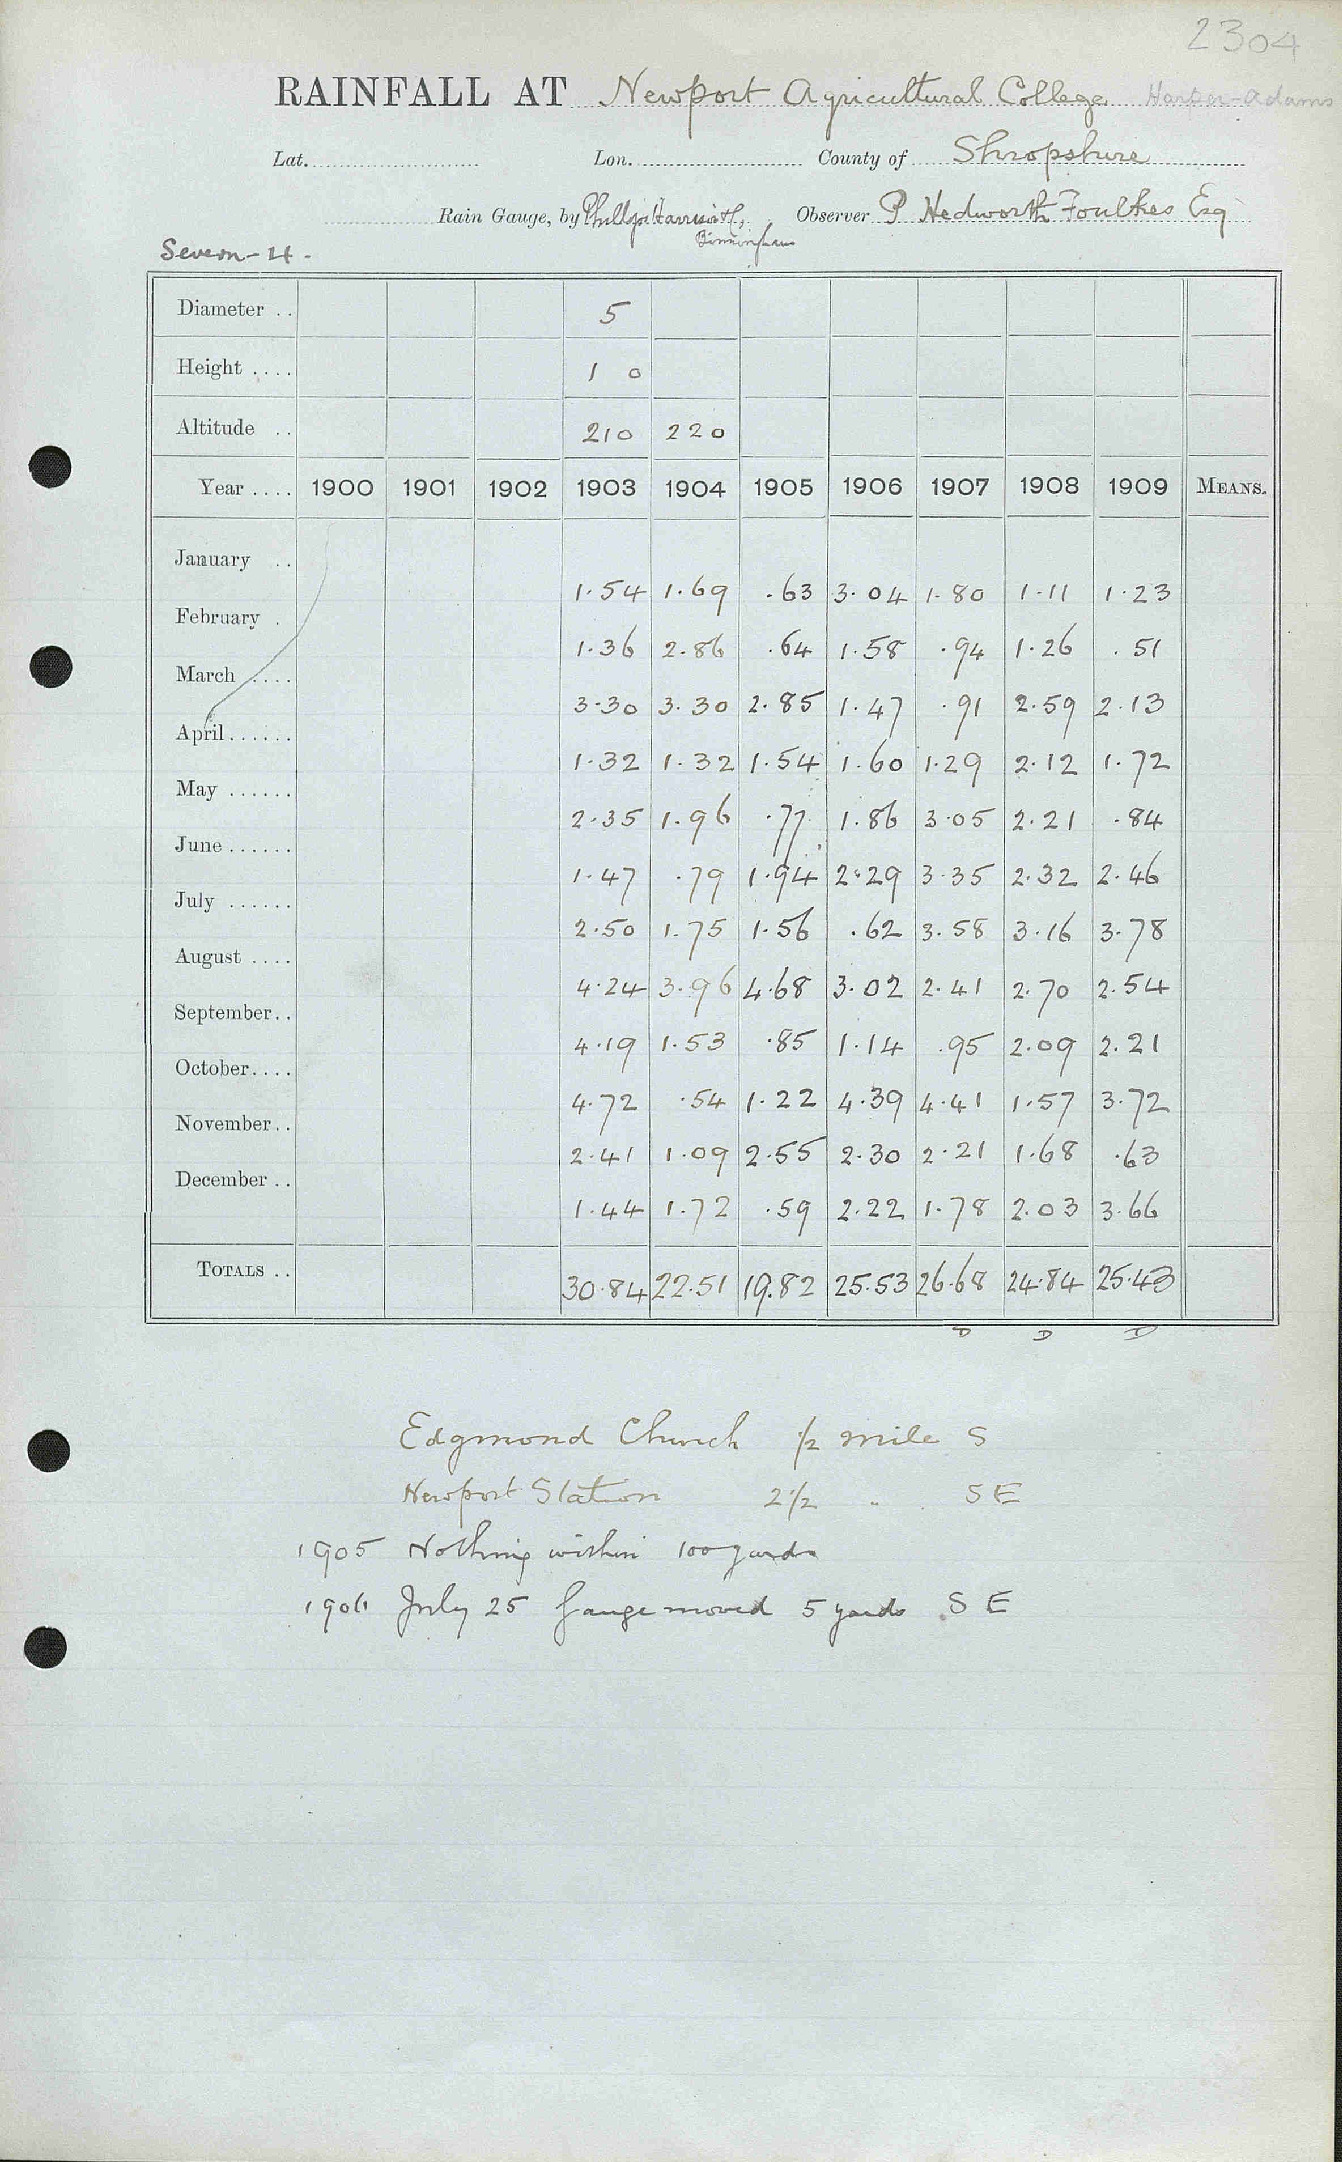 2304
RAINFALL AT Newport Agricultural College Harper-Adams
Lat. Lon. County of Shropshire
Rain Gauge, by Observer P Hedworth Foulkes Esq
Birmingham
Severn-4.
Diameter .. 5
Height .... 1 0
Altitude .. 210 220
Year .... 1900 1901 1902 1903 1904 1905 1906 1907 1908 1909 MEANS.
January .. 1.54 1.69 .63 3.04 1.80 1.11 1.23
February . 1.36 2.86 .64 1.58 .94 1.26 .51
March .... 3.30 3.30 2.85 1.47 .91 2.59 2.13
April...... 1.32 1.32 1.54 1.60 1.29 2.12 1.72
May ...... 2.35 1.96 .77 1.86 3.05 2.21 .84
June...... 1.47 .79 1.94 2.29 3.35 2.32 2.46
July ...... 2.50 1.75 1.56 .62 3.58 3.16 3.78
August .... 4.24 3.96 4.68 3.02 2.41 2.70 2.54
September.. 4.19 1.53 .85 1.14 .95 2.09 2.21
October.... 4.72 .54 1.22 4.39 4.41 1.57 3.72
November.. 2.41 1.09 2.55 2.30 2.21 1.68 .63
December .. 1.44 1.72 .59 2.22 1.78 2.03 3.66
TOTALS .. 30.84 22.51 19.82 25.53 26.68 24.84 25.43
D D D
Edgmond Church 1/2 mile S
Newport Station 2 1/2 " SE
1905 Nothing within 100 yards
1906 July 25 Gauge moved 5 yards S E